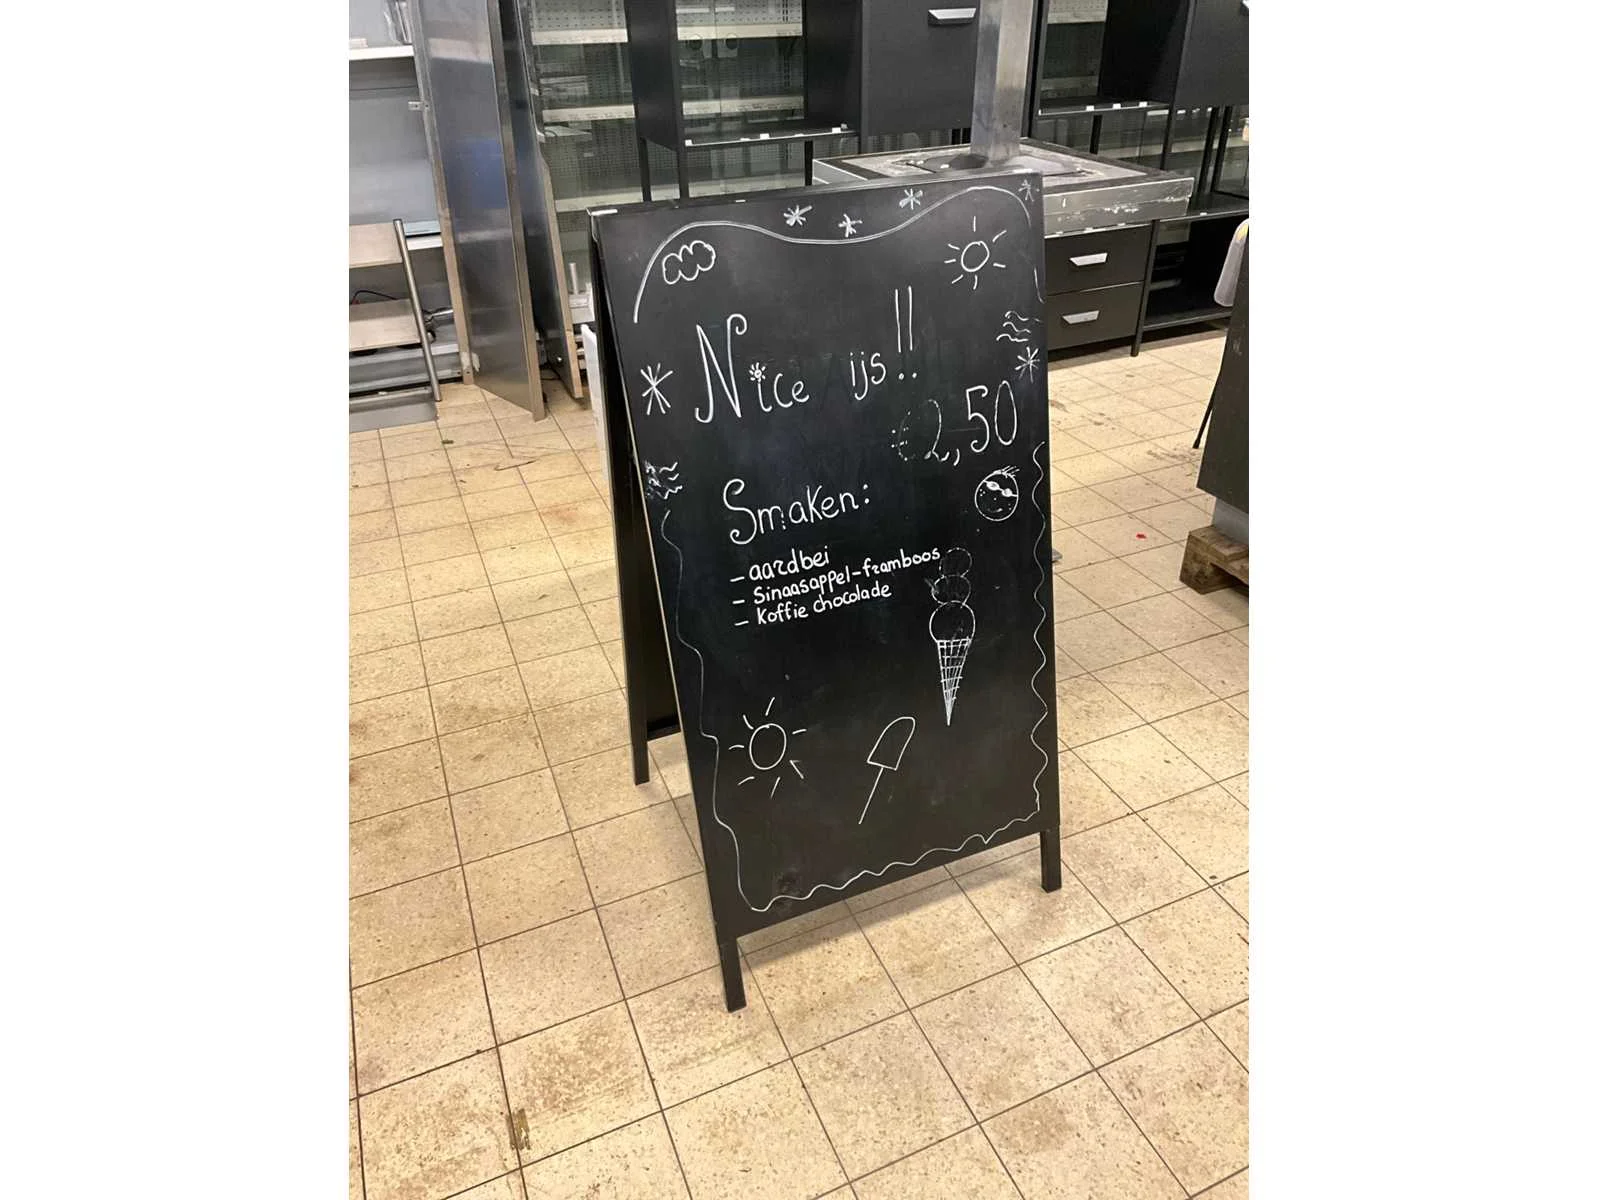 Nice ijs!!
€2,50
Smaken:
- aardbei
- Sinaasappel-framboos
- Koffie chocolade